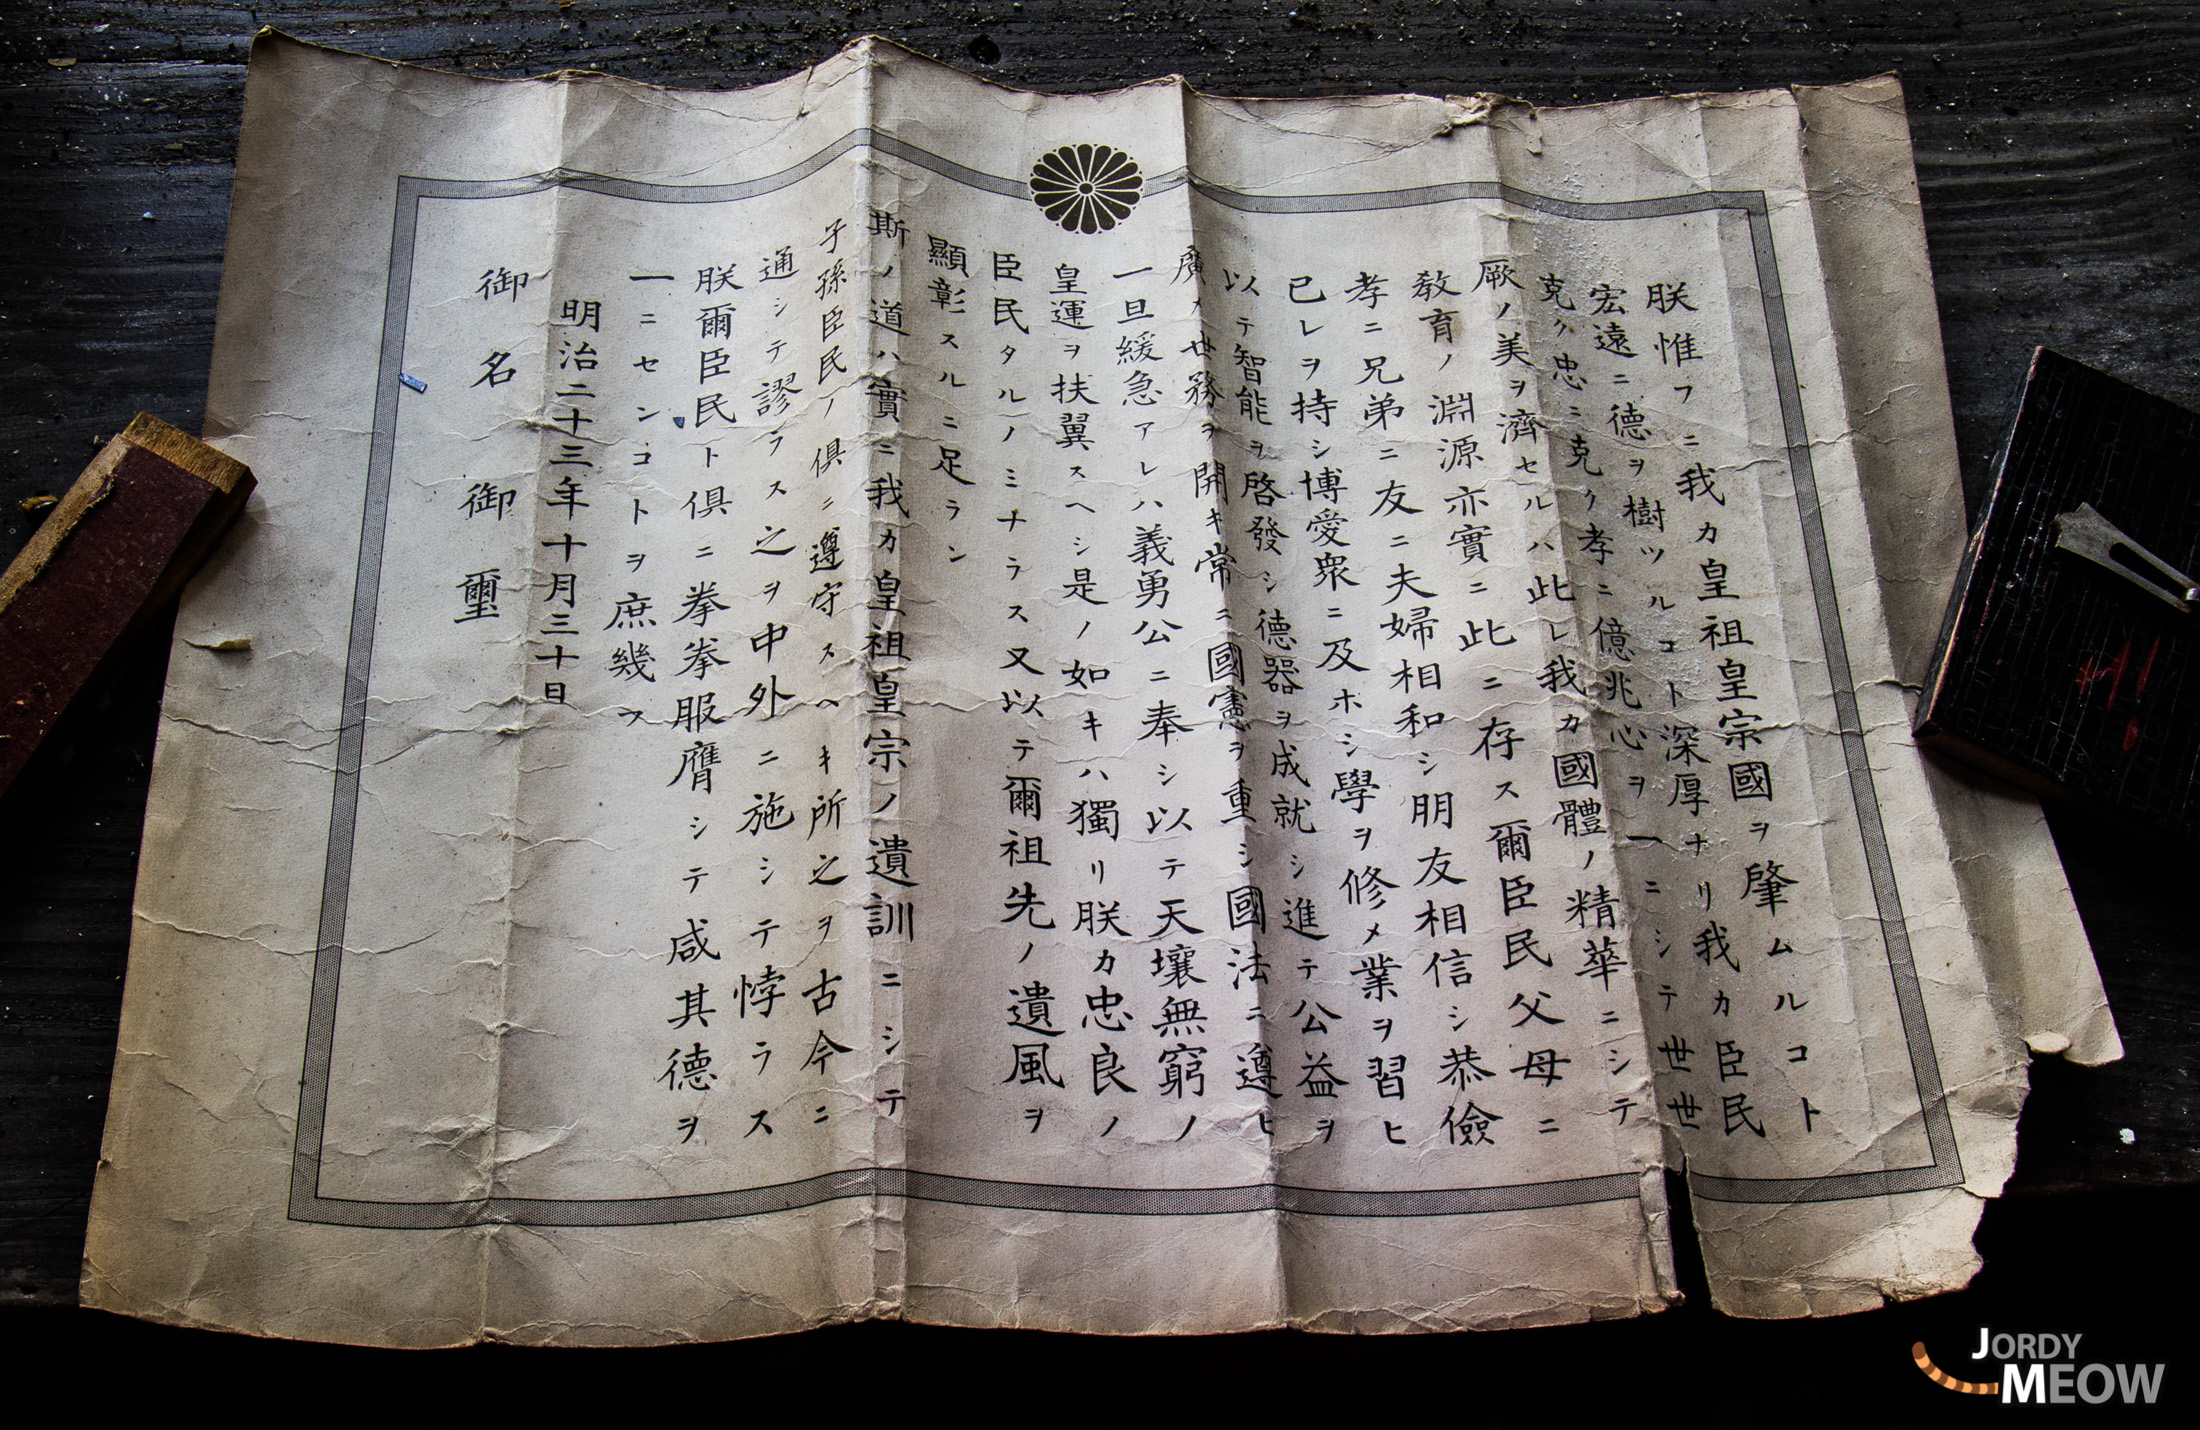 朕惟フニ我カ皇祖皇宗國ヲ肇ムルコト
宏遠ニ德ヲ樹ツルコト深厚ナリ我カ臣民
克ク忠ニ克ク孝ニ億兆心ヲ一ニシテ世世
厥ノ美ヲ濟セルハ此レ我カ國體ノ精華ニシテ
教育ノ淵源亦實ニ此ニ存ス爾臣民父母ニ
孝ニ兄弟ニ友ニ夫婦相和シ朋友相信シ恭儉
己レヲ持シ博愛衆ニ及ホシ學ヲ修メ業ヲ習ヒ
以テ智能ヲ啓發シ德器ヲ成就シ進テ公益ヲ
廣メ世務ヲ開キ常ニ國憲ヲ重シ國法ニ遵ヒ
一旦緩急アレハ義勇公ニ奉シ以テ天壤無窮ノ
皇運ヲ扶翼スヘシ是ノ如キハ獨リ朕カ忠良ノ
臣民タルノミナラス又以テ爾祖先ノ遺風ヲ
顯彰スルニ足ラン
斯ノ道ハ實ニ我カ皇祖皇宗ノ遺訓ニシテ
子孫臣民ノ俱ニ遵守スヘキ所之ヲ古今ニ
通シテ謬ラス之ヲ中外ニ施シテ悖ラス
朕爾臣民ト俱ニ拳拳服膺シテ咸其德ヲ
一ニセンコトヲ庶幾フ
明治二十三年十月三十日
御名御璽
JORDY
MEOW